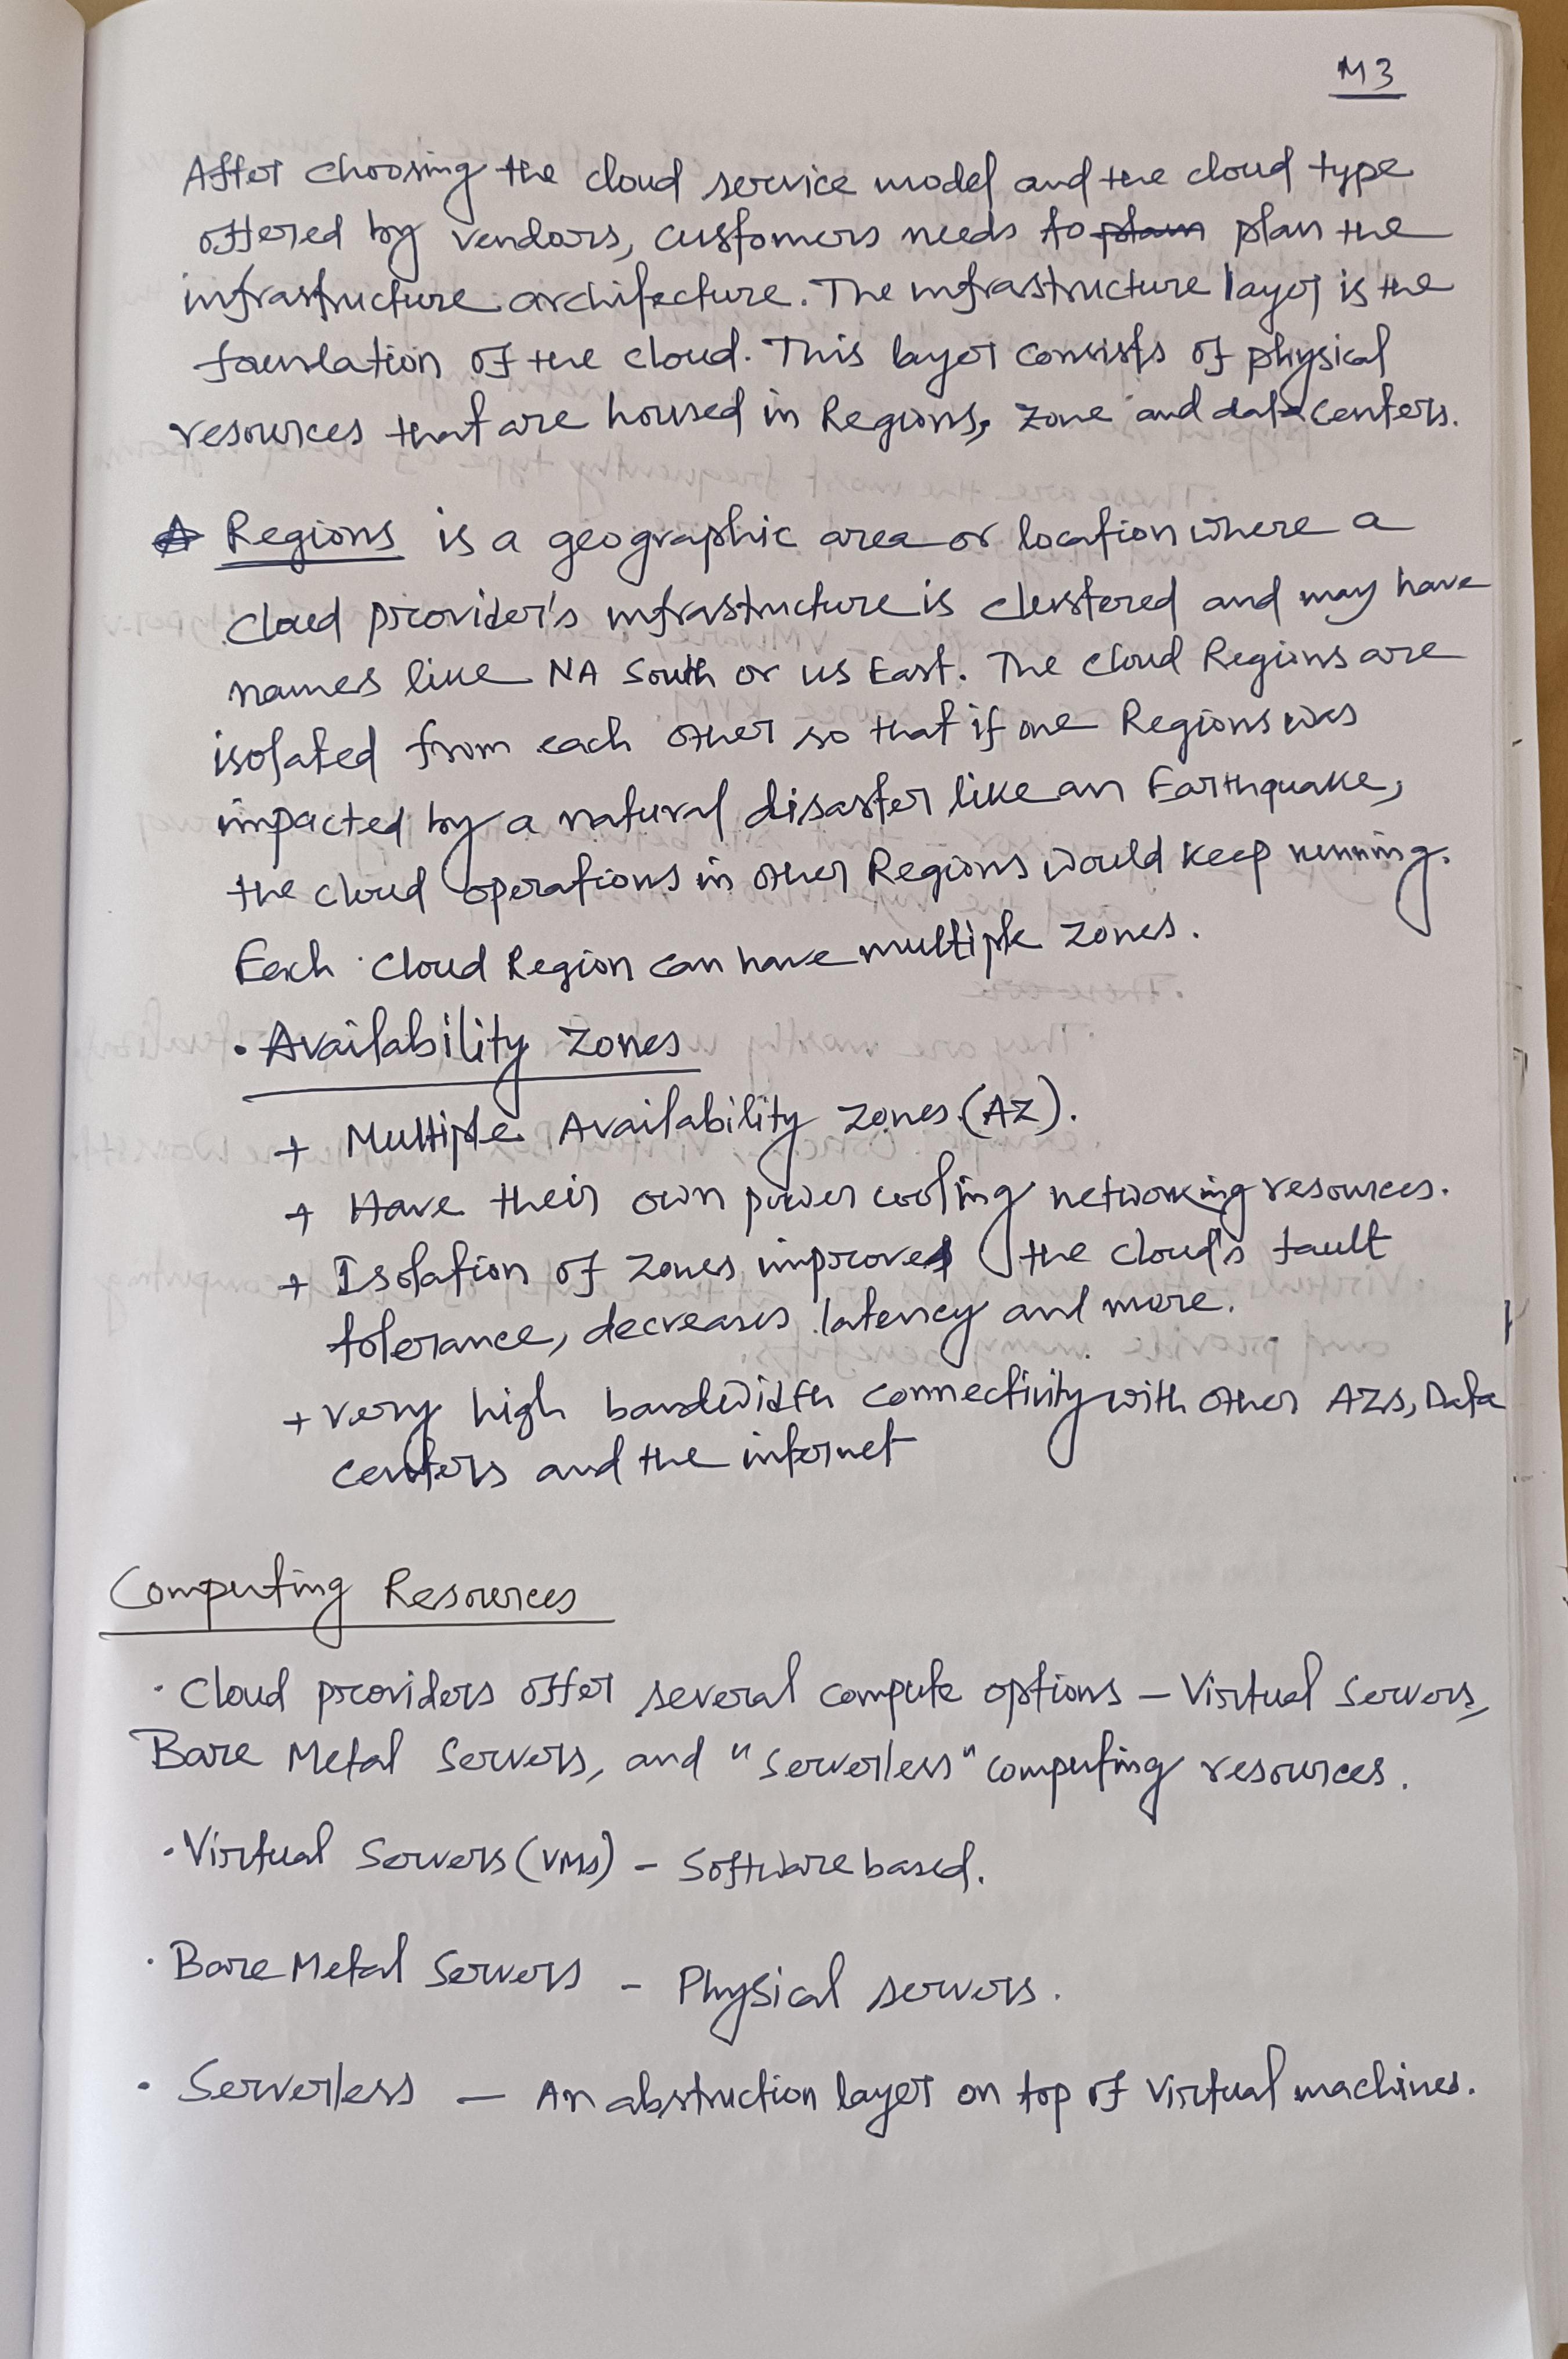 M3
After choosing the cloud service model and the cloud type
offered by vendors, customers needs to plain plan the
infrastructure architecture. The infrastructure layer is the
foundation of the cloud. This layer consists of physical
resources that are housed in Regions, zone and data centers.
Regions is a geographic area or location where a
cloud provider's infrastructure is clustered and may have
names like NA South or US East. The cloud Regions are
isolated from each other so that if one Regions was
impacted by a natural disaster like an Earthquake,
the cloud operations in other Regions would keep running.
Each cloud Region can have multiple zones.
• Availability zones
+ Multiple Availability zones (AZ).
+ Have their own power cooling networking resources.
+ Isolation of zones improves the cloud's fault
tolerance, decreases latency and more.
+ very high bandwidth connectivity with other AZs, Data
centers and the internet
Computing Resources
• Cloud providers offer several compute options – Virtual Servers,
Bare Metal Servers, and "Serverless" computing resources.
• Virtual Servers (VMs) – Software based.
• Bare Metal Servers – Physical servers.
• Serverless – An abstruction layer on top of virtual machines.